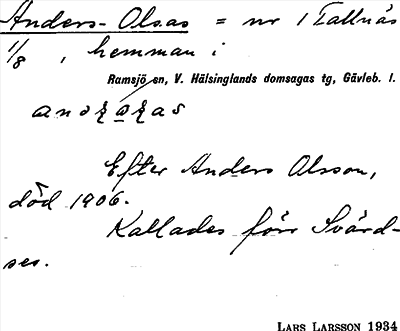 Anders-Olsas = nr 1 Tallnäs
1/8, hemman i
Ramsjö sn, V. Hälsinglands domsagas tg, Gävleb. l.
Efter Anders Olsson,
död 1906.
Kallades förr Svärd-
ses.
LARS LARSSON 1934